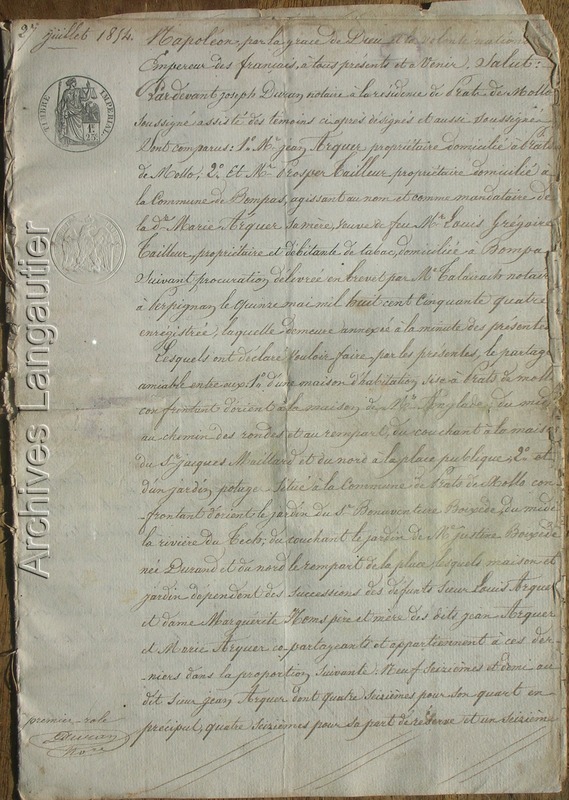 27 juillet 1854.
Napoléon, par la grace de Dieu et la volonté nationale
Empereur des français, à tous présents et à Venir, Salut:
Pardevant joseph Duran notaire à la résidence de Prats de Mollo
soussigné assisté des témoins ci après désignés et aussi soussignés
Sont comparus: 1º Mr jean Arquer propriétaire domicilié à Prats
de Mollo, 2º Et Mr Prosper Tailleur propriétaire domicilié à
la Commune de Bompas, agissant au nom et comme mandataire de
la de Marie Arquer sa mère, veuve de feu Mr Louis Grégoire
Tailleur, propriétaire et débitante de tabac, domiciliée à Bompas
Suivant procuration délivrée en brevet par Me notaire
à Perpignan le quinze mai mil huit cent cinquante quatre
enregistrée, laquelle demeure annexée à la minute des présentes
Lesquels ont déclaré vouloir faire par les présentes, le partage
amiable entre eux, 1º d'une maison d'habitation sise à Prats de mollo
confrontant d'orient à la maison de Mr Anglade, du midi
au chemin des rondes et au rempart, du couchant à la maison
du Sr jacques Maillard et du nord à la place publique, 2º et
d'un jardin potager situé à la Commune de Prats de Mollo con-
-frontant d'orient le jardin du Sr Bonaventure Boixède, du midi
la rivière du Tech, du couchant le jardin de Me justine Boixède
née Durand et du nord le rempart de la place, lesquels maison et
jardin dépendent des successions des défunts sieur Louis Arquer
et dame Marguérite Homs père et mère des dits jean Arquer
et Marie Arquer co-partageants et appartiennent à ces der-
niers dans la proportion suivante: Neuf seizièmes et demi au
dit sieur jean Arquer dont quatre seizièmes pour son quart en
préciput, quatre seizièmes pour sa part de réserve et un seizième
premier role
Duran
Nore
TIMBRE IMPERIAL
1F
25c
Archives Langautier